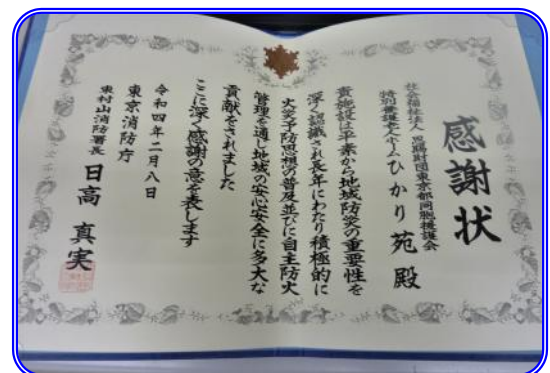 感謝状
社会福祉法人 恩賜財団東京都同胞援護会
特別養護老人ホームひかり苑 殿
貴施設は平素から地域防災の重要性を
深く認識され長年にわたり積極的に
火災予防思想の普及並びに自主防火
管理を通し地域の安心安全に多大な
貢献をされました
ここに深く感謝の意を表します
令和四年二月八日
東京消防庁
東村山消防署長 日高 真実